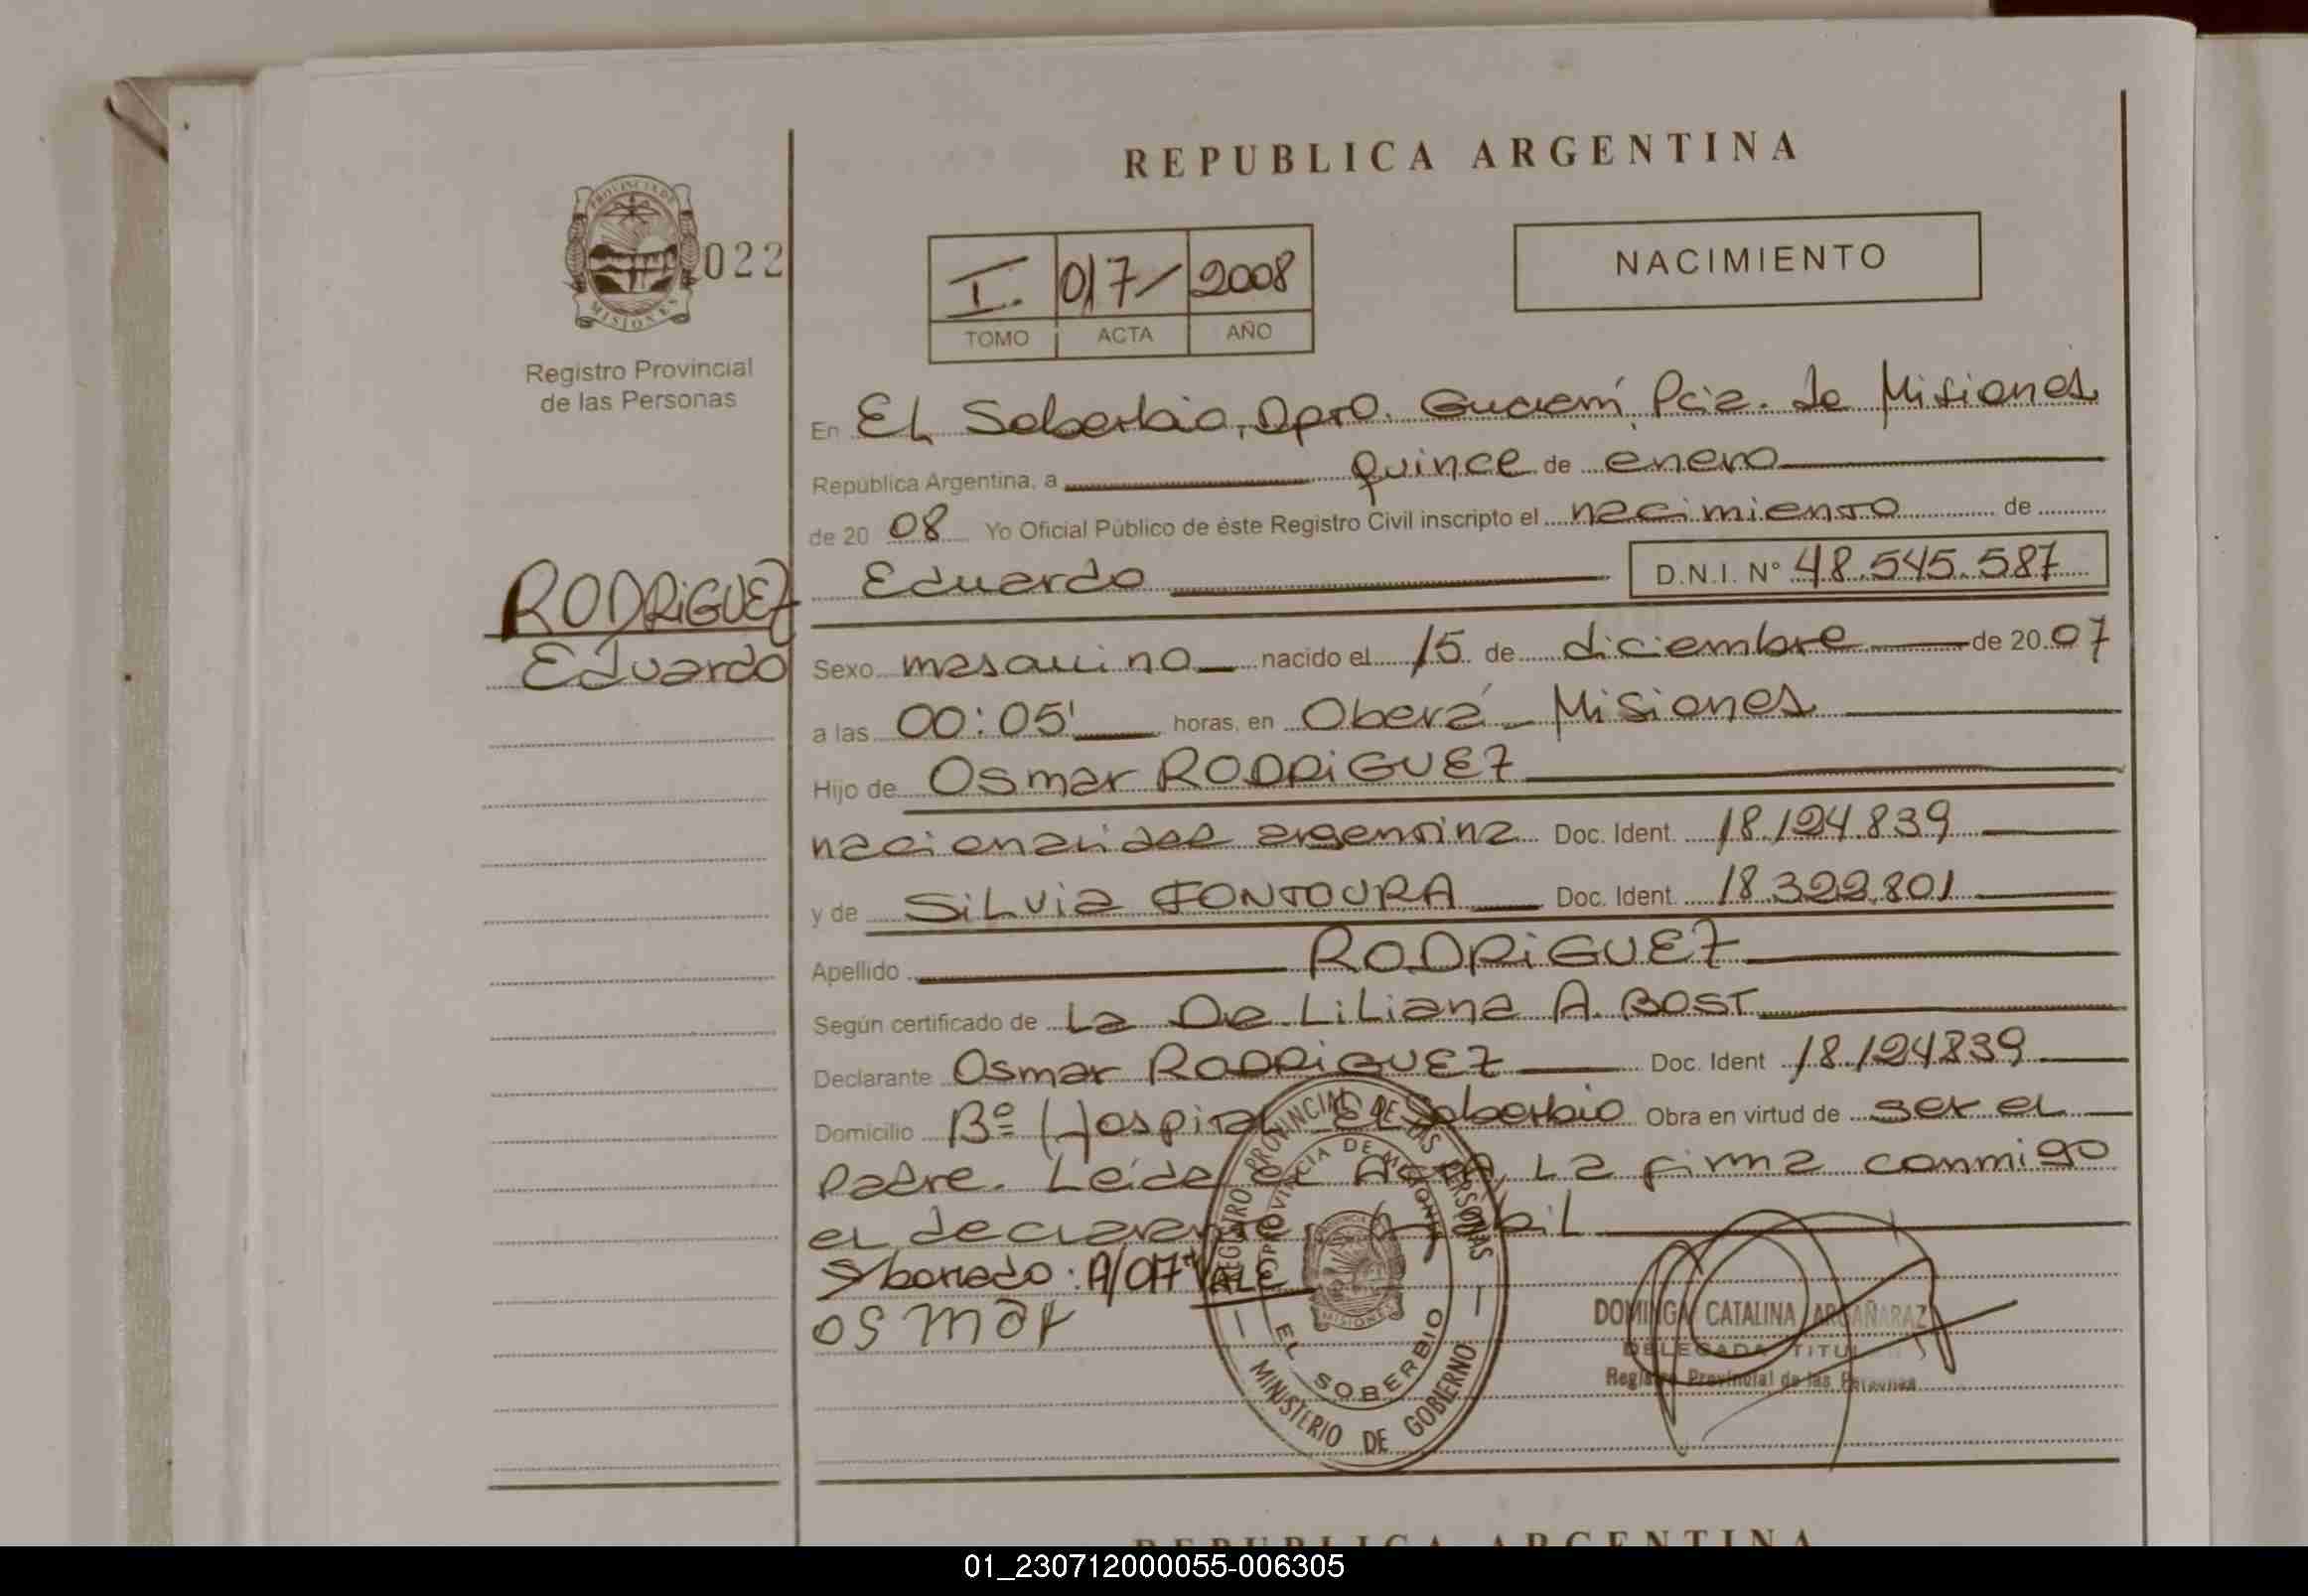 REPUBLICA ARGENTINA
PROVINCIA DE
MISIONES
022
I. 017/ 2008
TOMO ACTA AÑO
NACIMIENTO
Registro Provincial
de las Personas
En El Soberbio, Dpto. Guaraní, Pcia. de Misiones
República Argentina, a quince de enero
de 20 08 Yo Oficial Público de éste Registro Civil inscripto el nacimiento de
Eduardo D.N.I. Nº 48.545.587
RODRIGUEZ
Eduardo
Sexo masculino nacido el 15 de diciembre de 20 07
a las 00:05' horas, en Oberá - Misiones
Hijo de Osmar RODRIGUEZ
nacionalidad argentina Doc. Ident. 18.124.839
y de Silvia FONTOURA Doc. Ident. 18.322.801
Apellido RODRIGUEZ
Según certificado de La De Liliana A. BOST
Declarante Osmar RODRIGUEZ Doc. Ident 18.124839
Domicilio Bº Hospital El Soberbio Obra en virtud de ser el
Padre. Leída el Acta, la firma conmigo
el declarante, hábil
S/borrado: A/017 "VALE
osmar
REGISTRO PROVINCIAL DE LAS PERSONAS
PROVINCIA DE MISIONES
EL SOBERBIO
MINISTERIO DE GOBIERNO
DOMINGA CATALINA ARGAÑARAZ
DELEGADA TITULAR
Registro Provincial de las Personas
REPUBLICA ARGENTINA
01_230712000055-006305